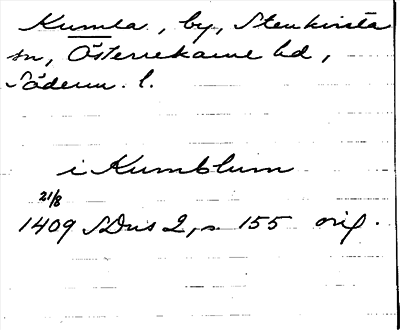 Kumla, by, Stenkvista
sn, Österrekarne hd,
Söderm. l.
i Kumblum
21/8
1409 SDns 2, s 155 orig.